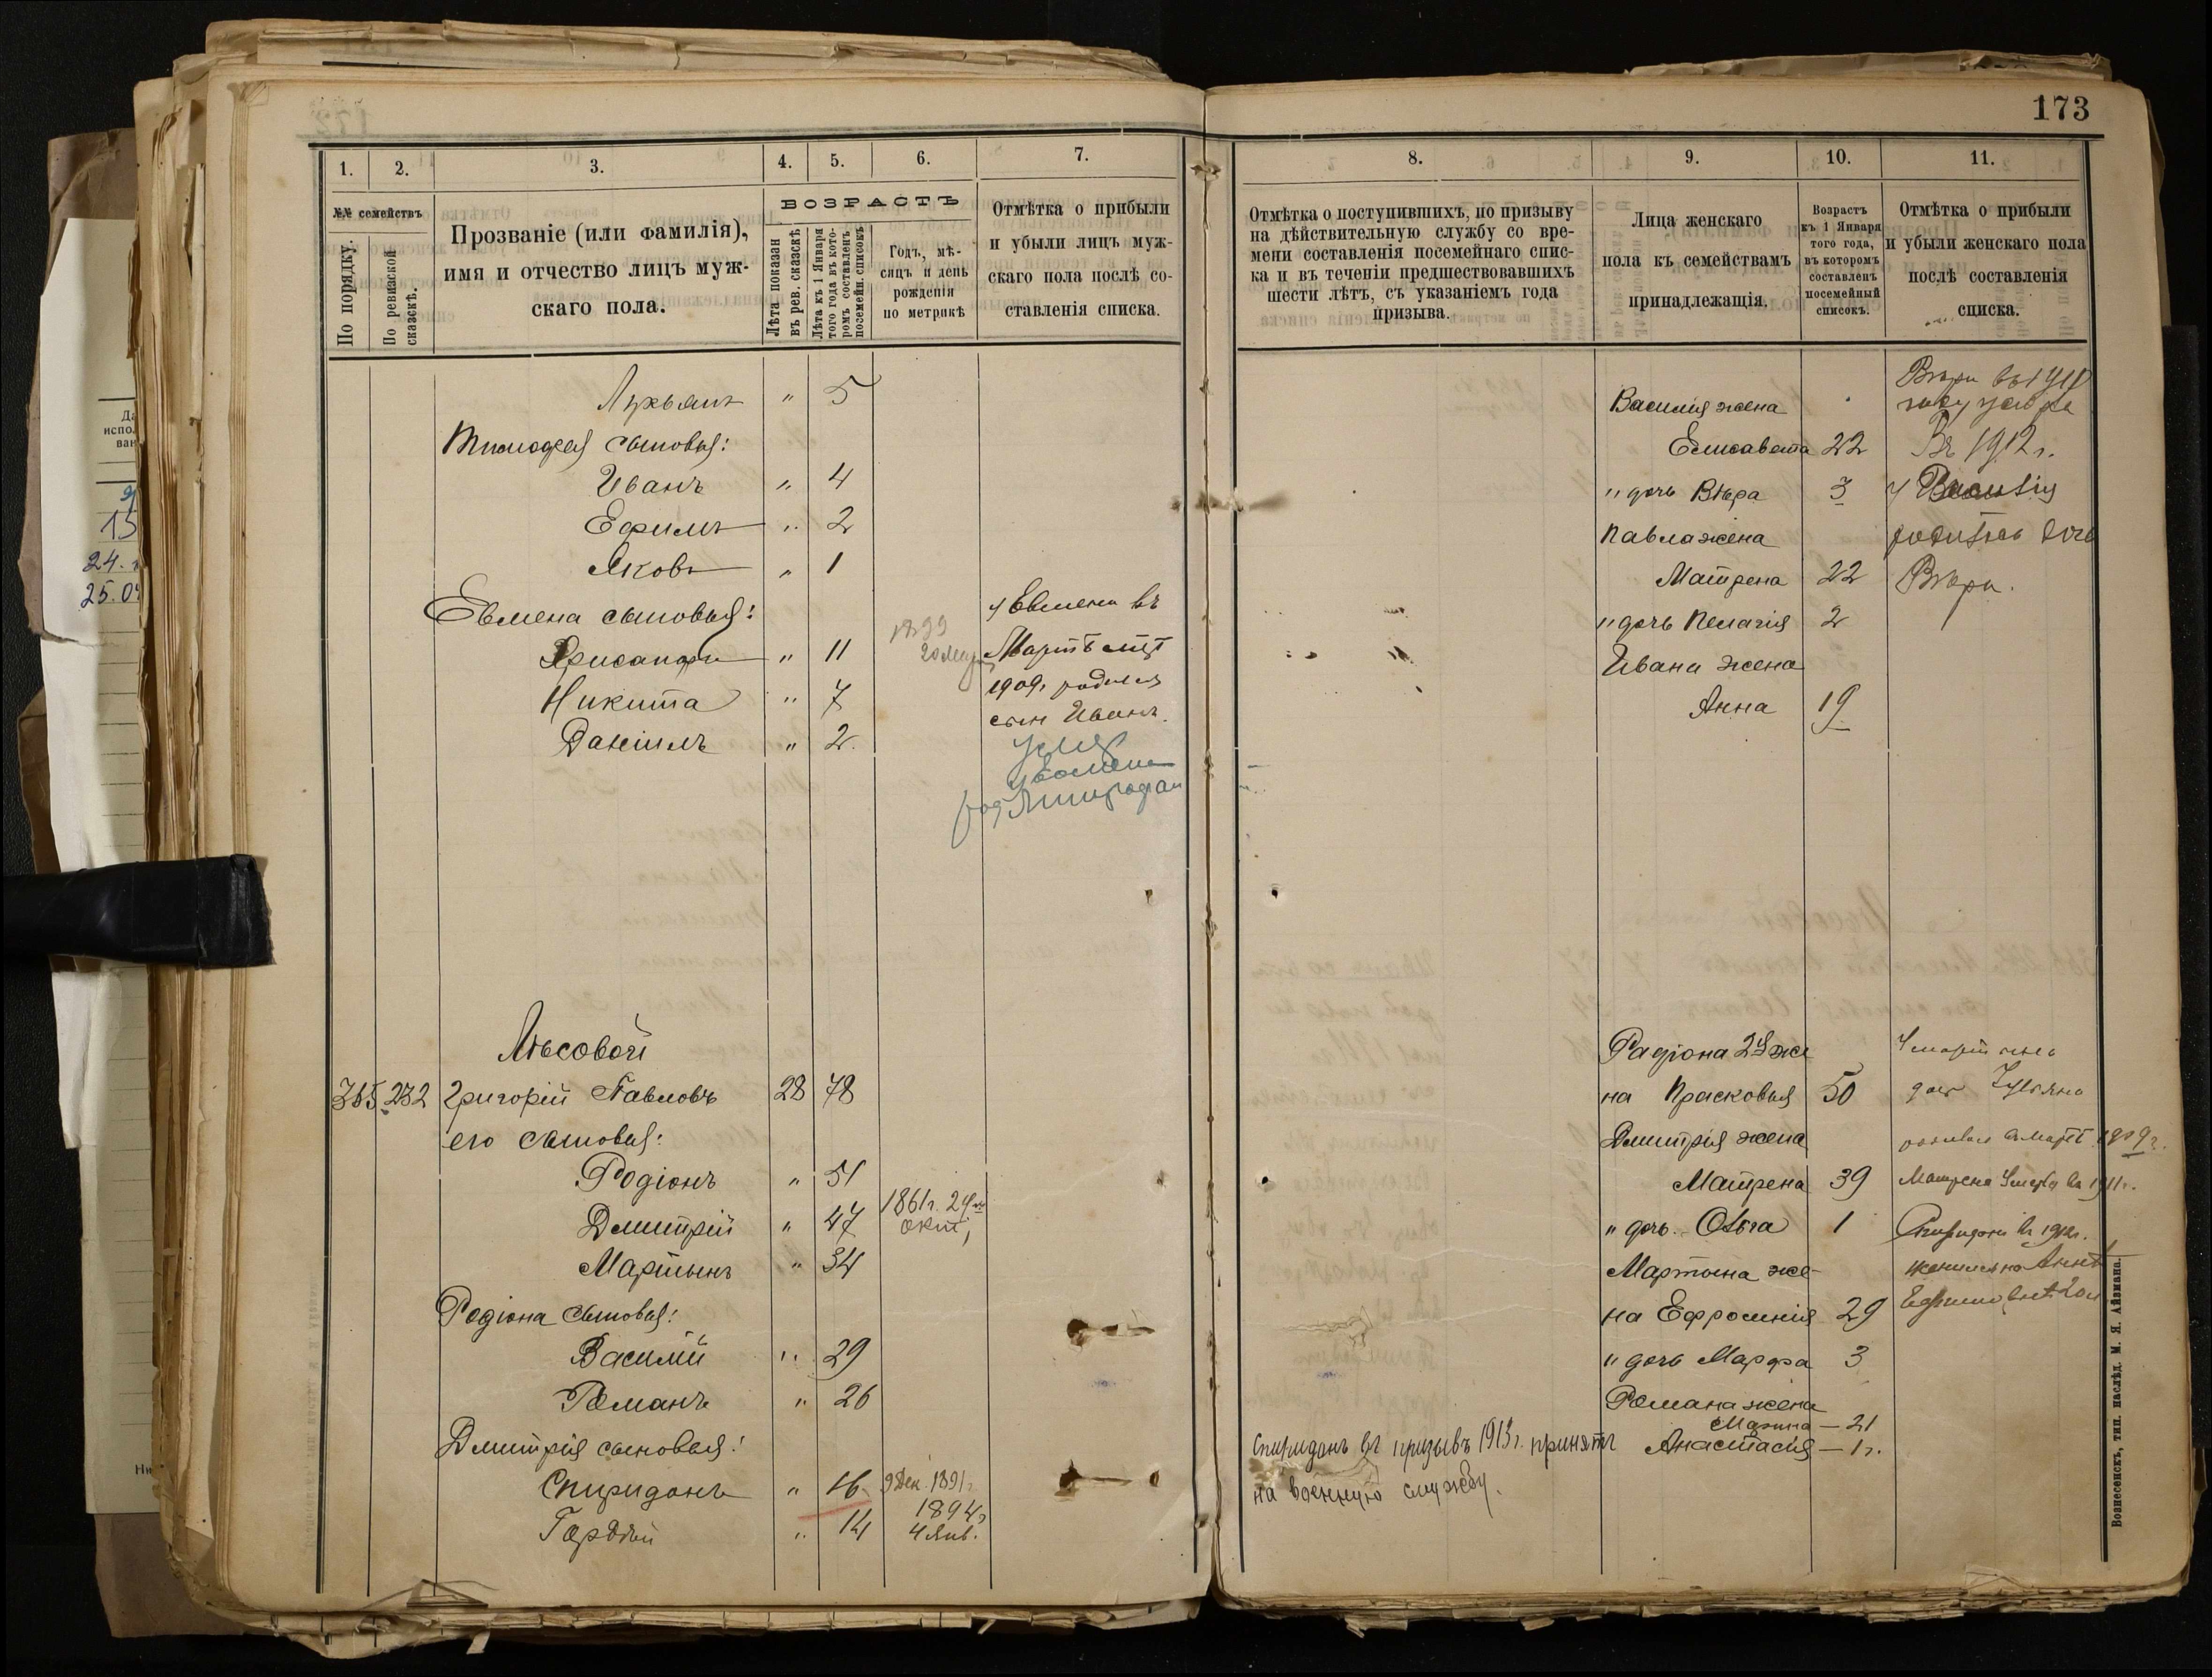 173
1. 2. 3. 4. 5. 6. 7.
№№ семействъ
По порядку.
По ревизской сказскѣ.
Прозваніе (или фамилія),
имя и отчество лицъ муж-
скаго пола.
ВОЗРАСТЪ
Лѣта показан
въ рев. сказскѣ
Лѣта къ 1 Января
того года въ кото-
ромъ составленъ
посемейн. списокъ
Годъ, мѣ-
сяцъ и день
рожденія
по метрикѣ
Отмѣтка о прибыли
и убыли лицъ муж-
скаго пола послѣ со-
ставленія списка.
Лукьянъ " 5
Тимофея сыновья:
Иванъ " 4
Ефимъ " 2
Яковъ " 1
Евмена сыновья:
Хрисанфъ " 11 1899
Никита " 7
Даніилъ " 2
у Евмена въ
Мартѣ
1909 родился
сын Иванъ.
Лѣсовой
365 232 Григорій Павловъ 28 78
его сыновья:
Родіонъ " 51
Дмитрій " 47 1861г. 24го
окт,
Мартынъ " 34
Родіона сыновья:
Василій " 29
Романъ " 26
Дмитрія сыновья:
Спиридонъ " 16 9 Дек. 1891г.
Гордѣй " 14 1894г
4 Янв.
8. 9. 10. 11.
Отмѣтка о поступившихъ, по призыву
на дѣйствительную службу со вре-
мени составленія посемейнаго спис-
ка и въ теченіи предшествовавшихъ
шести лѣтъ, съ указаніемъ года
призыва.
Лица женскаго
пола къ семействамъ
принадлежащія.
Возрастъ
къ 1 Января
того года,
въ которомъ
составленъ
посемейный
списокъ.
Отмѣтка о прибыли
и убыли женскаго пола
послѣ составленія
списка.
Василія жена
Елисавета 22
" дочь Вѣра 3
Павла жена
Матрена 22
" дочь Пелагія 2
Ивана жена
Анна 19
Въ 1912 г.
у Василія
Вѣра.
Радіона 2я же
на Прасковья 50
Дмитрія жена
Матрена 39
" дочь Ольга 1
Мартына же-
на Ефросинія 29
" дочь Марфа 3
Романа жена
Марина — 21
Анастасія — 1 г.
1909г.
Матрена умерла въ 1911г.
Спиридонъ въ 1912г.
женился на Аннѣ
Спиридонъ въ призывъ 1913 г. принятъ
на военную службу.
Вознесенскъ, тип. наслѣд. М. Я. Айзмана.